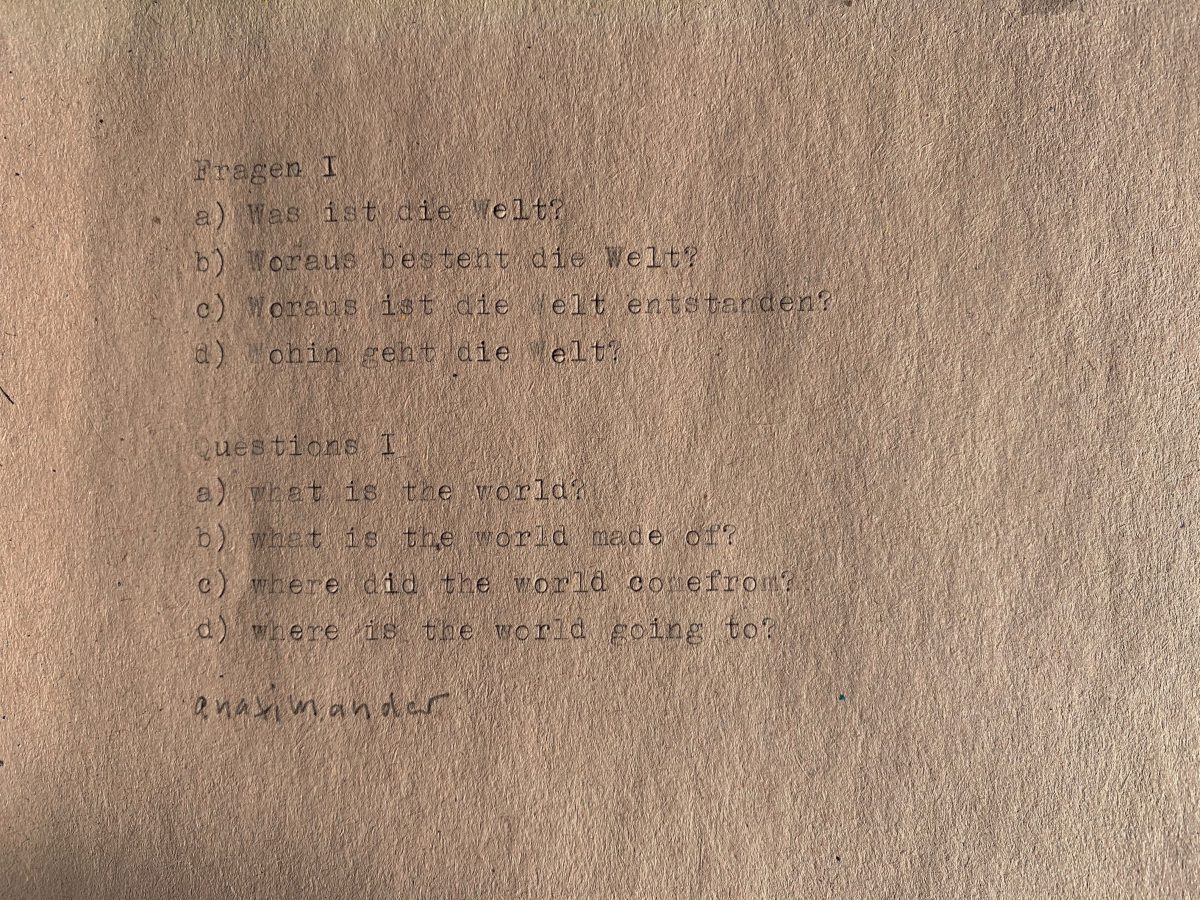 Fragen I
a) Was ist die Welt?
b) Woraus besteht die Welt?
c) Woraus ist die Welt entstanden?
d) Wohin geht die Welt?
Questions I
a) what is the world?
b) what is the world made of?
c) where did the world comefrom?
d) where is the world going to?
anaximander